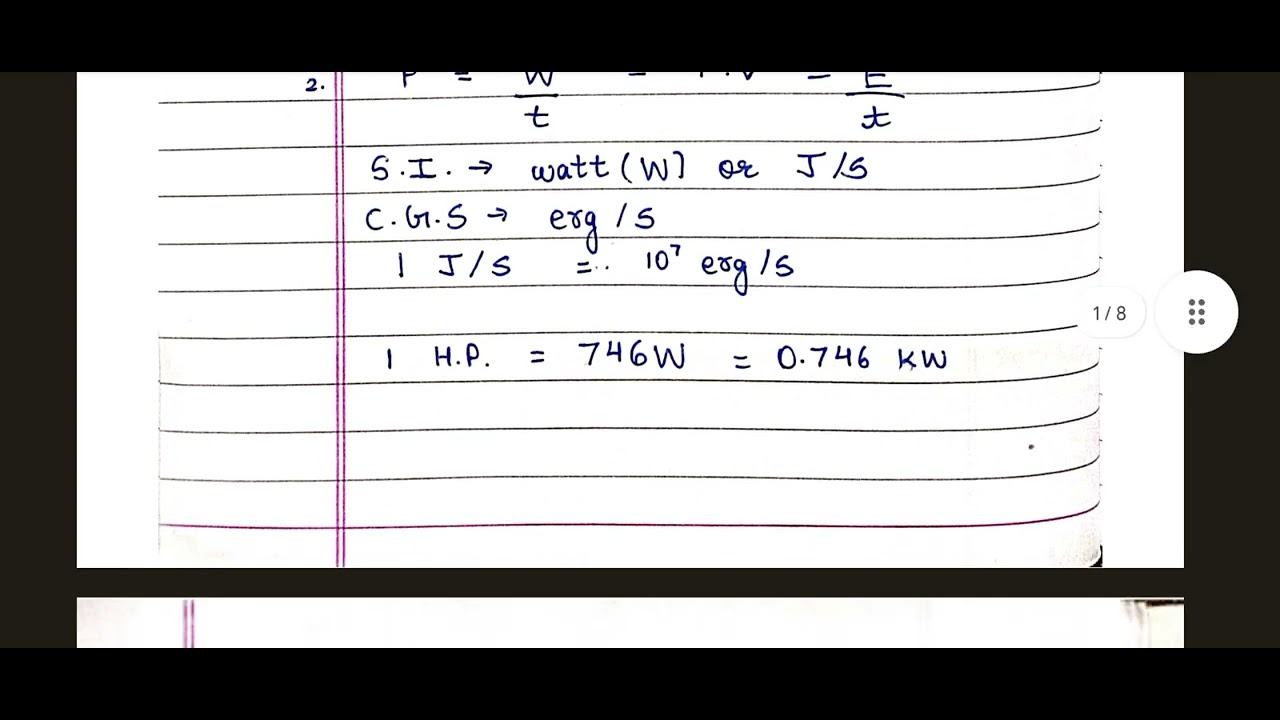 2. P = W/t = F.V = E/t
S.I. → watt (W) or J/S
C.G.S → erg/S
1 J/S =.. 10⁷ erg/S
1/8
1 H.P. = 746W = 0.746 KW